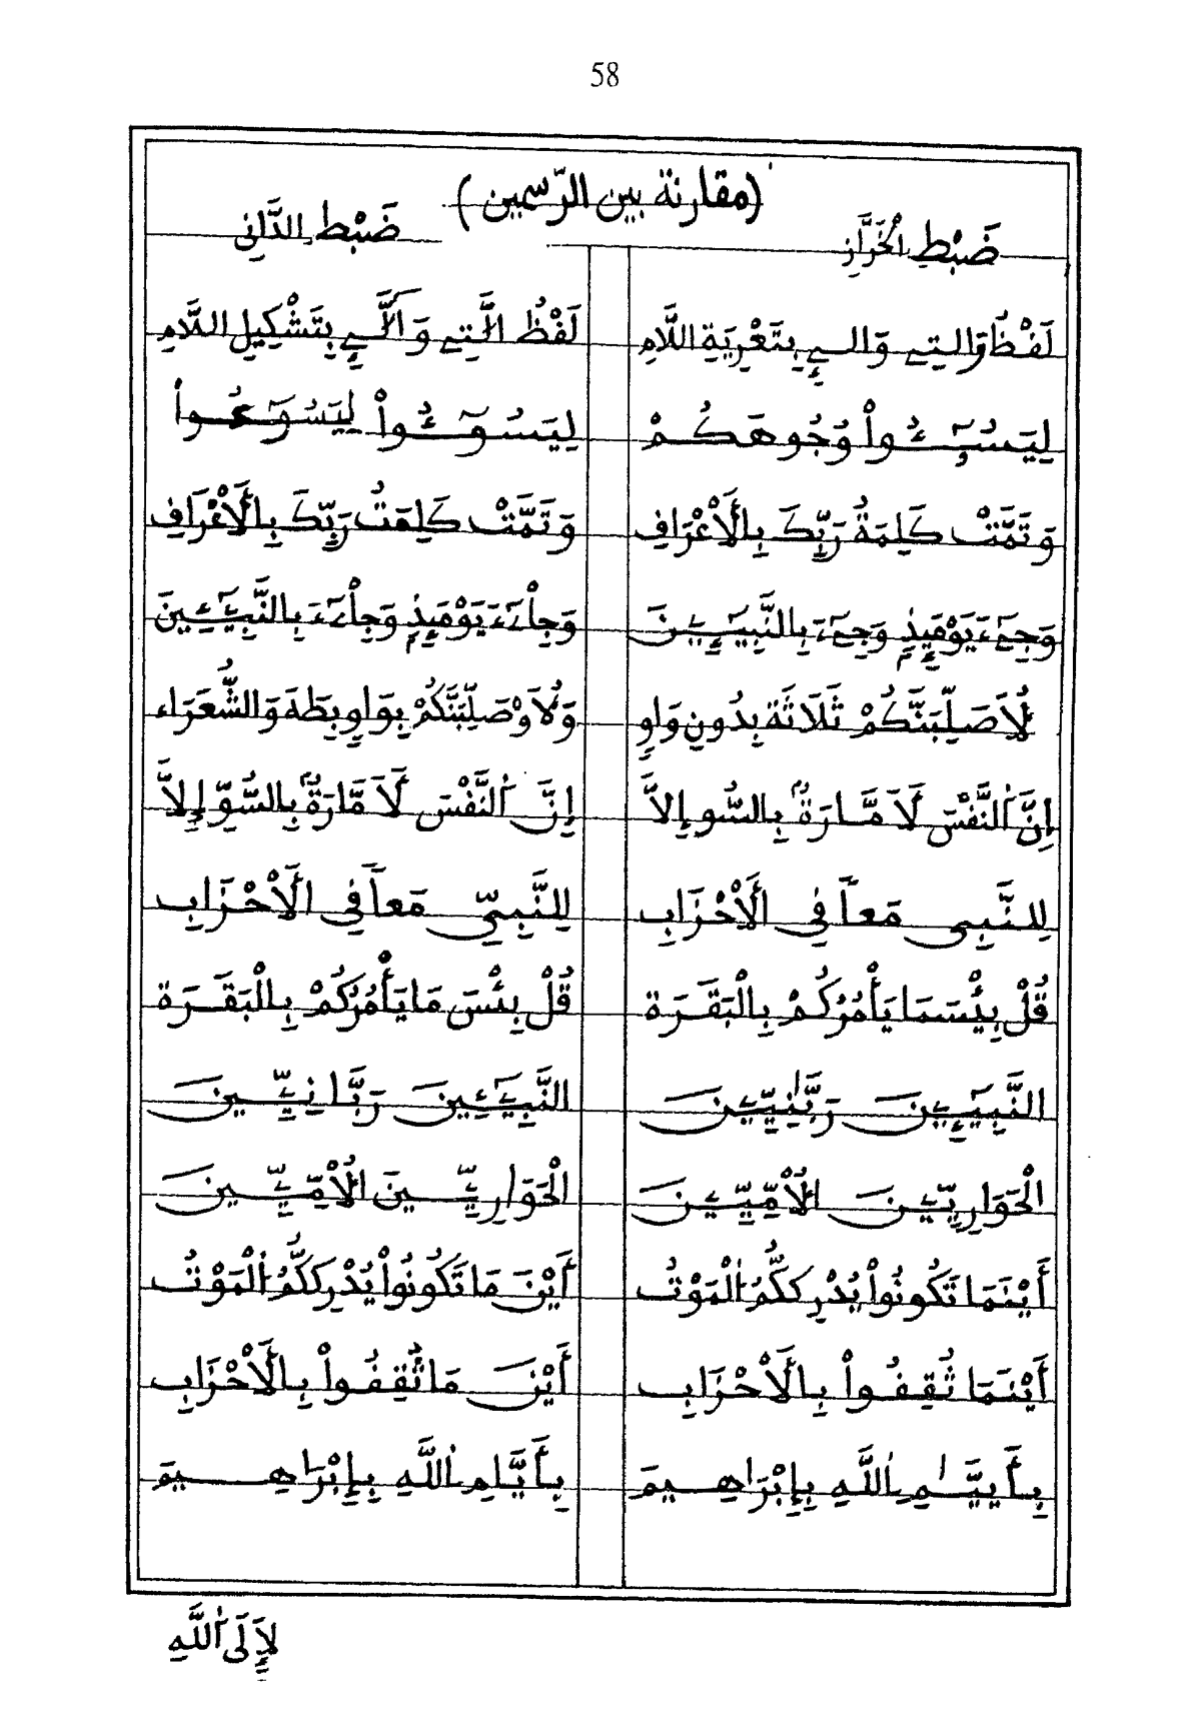 58
(مقارنة بين الرّسمين)
ضَبْطِ الْخَرَّازِ ضَبْطِ الدَّانِى
لَفْظُ وَالتِے وَالےِ بِتَعْرِيَةِ اللَّامِ لَفْظُ الَّتِے وَالَّےِ بِتَشْكِيلِ اللَّامِ
لِيَسُـۥٓـُٔواْ وُجُوهَكُمْ لِيَسُوٓـُٔواْ لِيَسُوٓءُواْ
وَتَمَّتْ كَلِمَةُ رَبِّكَ بِالْأَعْرَافِ وَتَمَّتْ كَلِمَتُ رَبِّكَ بِالْأَعْرَافِ
وَجِےٓءَ يَوْمَئِذِۢ وَجِےٓءَ بِالنَّبِيٓـِٕينَ وَجِاْےٓءَ يَوْمَئِذِۢ وَجِاْےٓءَ بِالنَّبِيٓـِٕينَ
لُأَصَلِّبَنَّكُمْ ثَلَاثَة بِدُونِ وَاوٍ وَلَأُوْصَلِّبَنَّكُمْ بِوَاوٍ بِطَهَ وَالشُّعَرَاء
إِنَّ اَ۬لنَّفْسَ لَأَمَّارَةُۢ بِالسُّوِ إِلاَّ إِنَّ اَ۬لنَّفْسَ لَأَمَّارَةُۢ بِالسُّوِّ إِلاَّ
لِلنَّبِےِ مَعاً فِي الْأَحْزَابِ لِلنَّبِيِّ مَعاً فِي الْأَحْزَابِ
قُلْ بِئْسَمَا يَأْمُرُكُمْ بِالْبَقَرَة قُلْ بِئْسَ مَا يَأْمُرُكُمْ بِالْبَقَرَة
النَّبِيٓـِٕينَ رَبَّٰنِيِّينَ النَّبِيٓـِٕينَ رَبَّانِيِّينَ
الْحَوَارِيِّينَ الْأُمِّيِّينَ الْحَوَارِيِّينَ الْأُمِّيِّينَ
أَيْنَمَا تَكُونُواْ يُدْرِككُّمُ اُ۬لْمَوْتُ أَيْنَ مَا تَكُونُواْ يُدْرِككُّمُ اُ۬لْمَوْتُ
أَيْنَمَا ثُقِفُواْ بِالْأَحْزَابِ أَيْنَ مَا ثُقِفُواْ بِالْأَحْزَابِ
بِأَيَّيٰمِ اِ۬للَّهِ بِإِبْرَاهِيمَ بِأَيَّامِ اِ۬للَّهِ بِإِبْرَاهِيمَ
لَإِلَى اَ۬للَّهِ